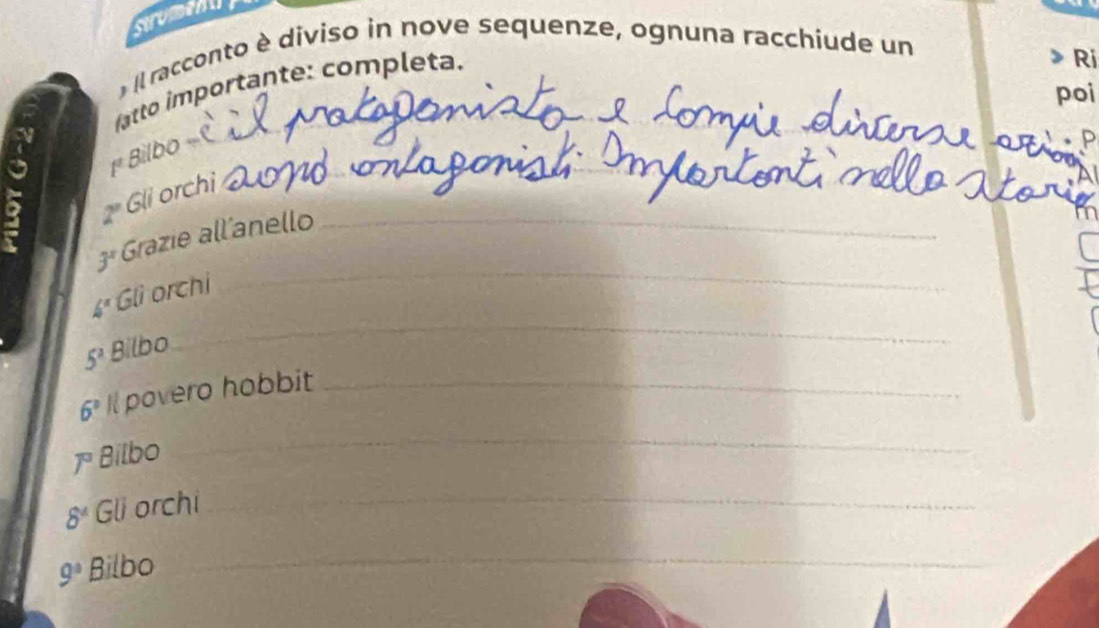 » Il racconto è diviso in nove sequenze, ognuna racchiude un
fatto importante: completa.
1ª Bilbo è il protagonista e compie diverse azioni
2ª Gli orchi sono antagonisti. Importanti nella storia
3ª Grazie all'anello
4ª Gli orchi
5ª Bilbo
6ª Il povero hobbit
7ª Bilbo
8ª Gli orchi
9ª Bilbo
» Ri
poi
P
Al
m
PILOT G-2